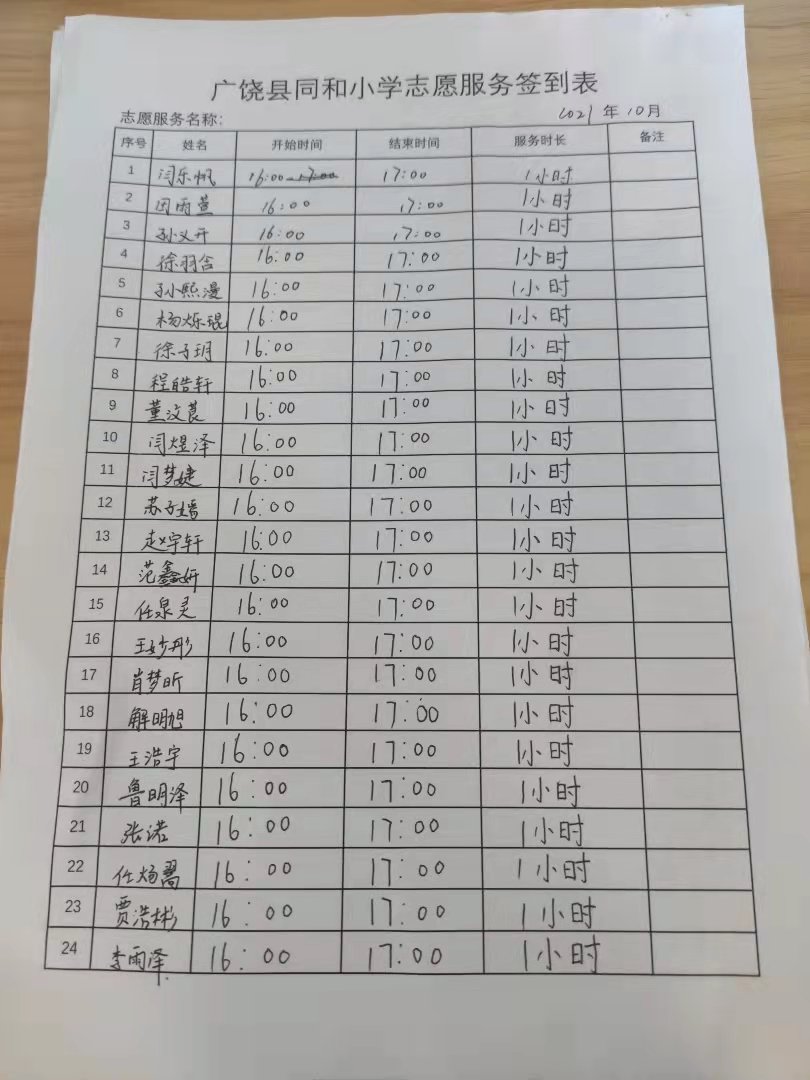 广饶县同和小学志愿服务签到表
志愿服务名称: 2021年10月
序号 姓名 开始时间 结束时间 服务时长 备注
1 闫乐帆 16:00-17:00 17:00 1小时
2 田雨萱 16:00 17:00 1小时
3 孙义开 16:00 17:00 1小时
4 徐羽含 16:00 17:00 1小时
5 孙熙漫 16:00 17:00 1小时
6 杨烁琨 16:00 17:00 1小时
7 徐子玥 16:00 17:00 1小时
8 程皓轩 16:00 17:00 1小时
9 董汶莨 16:00 17:00 1小时
10 闫煜泽 16:00 17:00 1小时
11 闫梦婕 16:00 17:00 1小时
12 苏子嫱 16:00 17:00 1小时
13 赵宇轩 16:00 17:00 1小时
14 范鑫妍 16:00 17:00 1小时
15 任泉灵 16:00 17:00 1小时
16 王妙彤 16:00 17:00 1小时
17 肖梦昕 16:00 17:00 1小时
18 解明旭 16:00 17:00 1小时
19 王浩宇 16:00 17:00 1小时
20 鲁明泽 16:00 17:00 1小时
21 张诺 16:00 17:00 1小时
22 任炀翯 16:00 17:00 1小时
23 贾浩彬 16:00 17:00 1小时
24 李雨泽 16:00 17:00 1小时